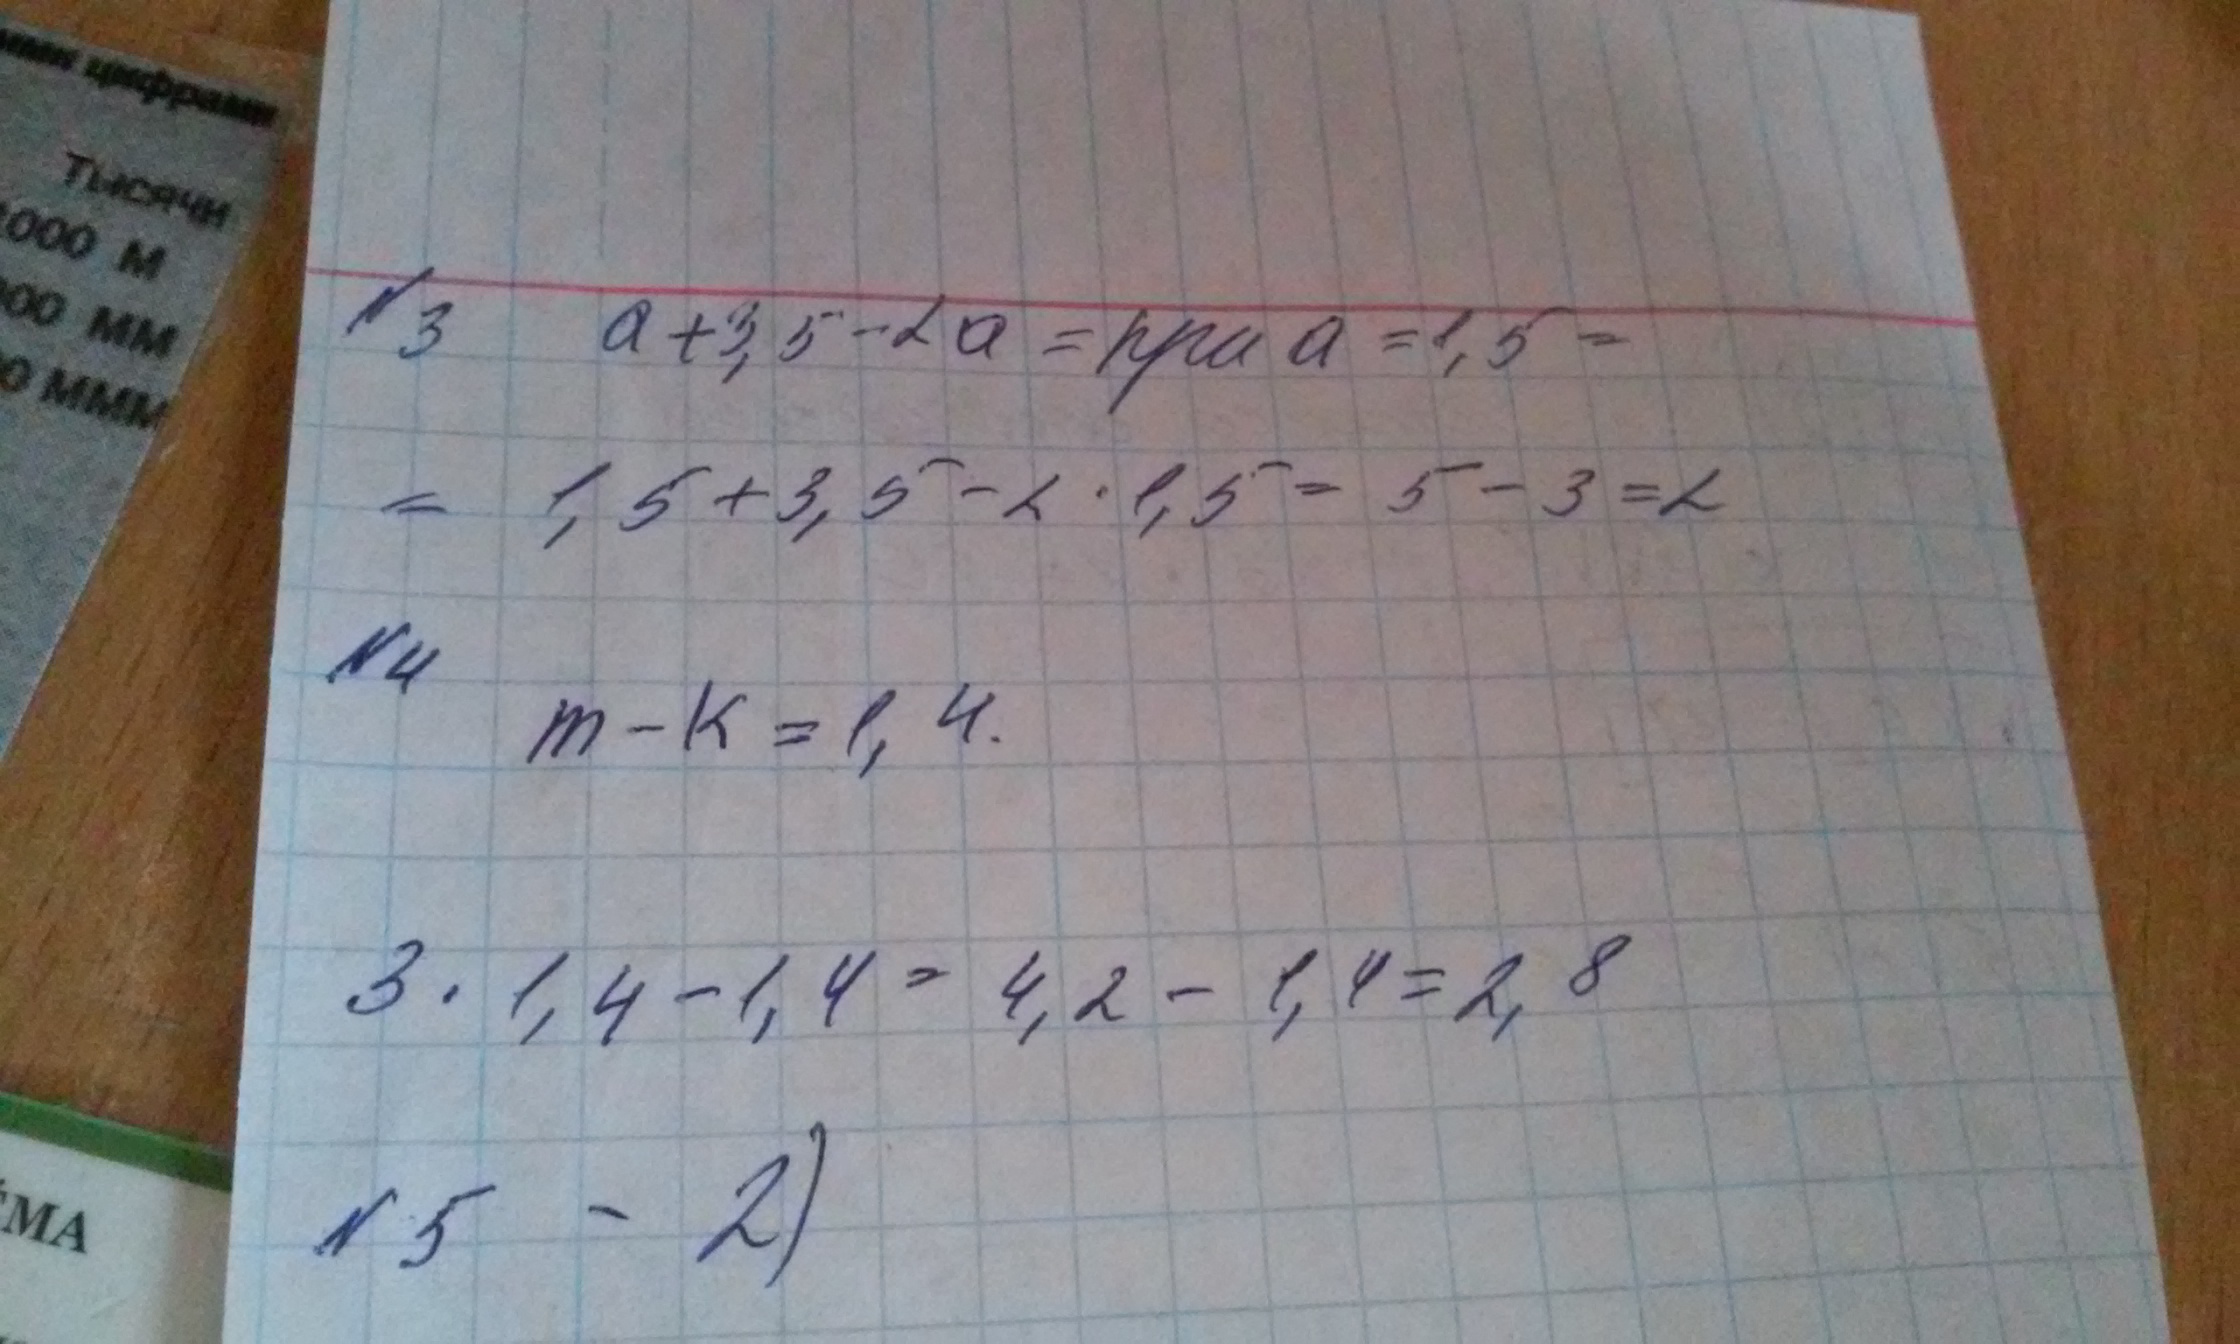 цифрами
Тысячи
1000 м
000 мм
00 мммм
N3 a + 3,5 - 2a = при a = 1,5 =
= 1,5 + 3,5 - 2 · 1,5 = 5 - 3 = 2
N4
m - k = 1,4.
3 · 1,4 - 1,4 = 4,2 - 1,4 = 2,8
N5 - 2)
ЁМА